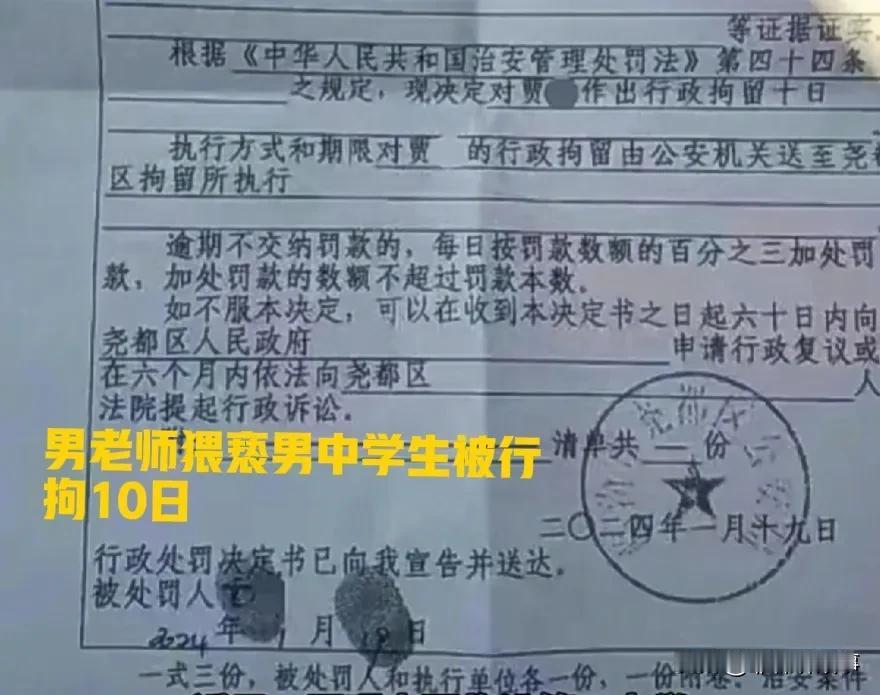 等证据证实
根据《中华人民共和国治安管理处罚法》第四十四条
之规定，现决定对贾 作出行政拘留十日
执行方式和期限对贾 的行政拘留由公安机关送至尧都
区拘留所执行
逾期不交纳罚款的，每日按罚款数额的百分之三加处罚
款，加处罚款的数额不超过罚款本数。
如不服本决定，可以在收到本决定书之日起六十日内向
尧都区人民政府 申请行政复议或
在六个月内依法向尧都区 人
法院提起行政诉讼。
清单共 份
男老师猥亵男中学生被行
拘10日
二〇二四年一月十九日
行政处罚决定书已向我宣告并送达。
被处罚人
2024 年 1 月 19 日
一式三份，被处罚人和执行单位各一份，一份附卷。治安案件